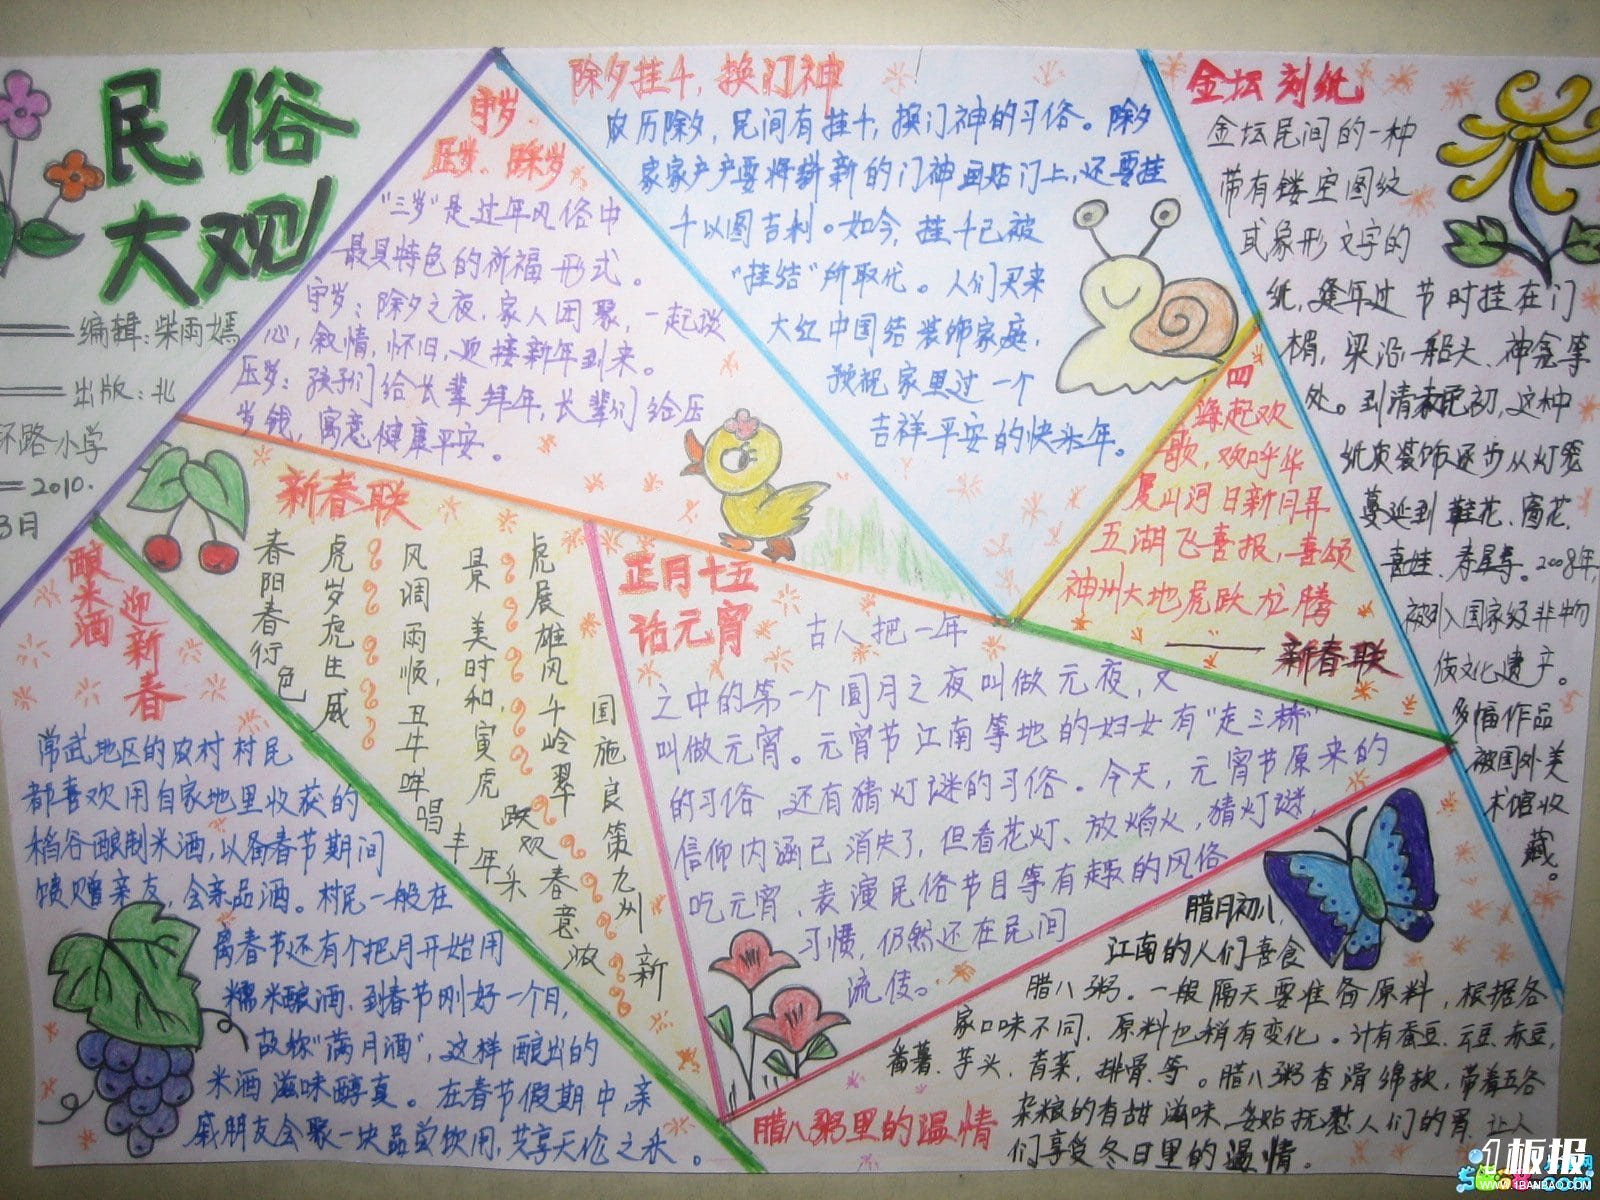 民俗
大观
编辑:柴雨嫣
出版:北
环路小学
2010.
3月
守岁、
压岁、踩岁
"三岁"是过年风俗中
最具特色的祈福形式。
守岁:除夕之夜,家人团聚,一起谈
心,叙情,怀旧,迎接新年到来。
压岁:孩子们给长辈拜年,长辈们给压
岁钱,寓意健康平安。
除夕挂千,换门神
农历除夕,民间有挂千,换门神的习俗。除夕
家家户户要将崭新的门神画贴门上,还要挂
千以图吉利。如今,挂千已被
"挂结"所取代。人们买来
大红中国结装饰家庭,
预祝家里过一个
吉祥平安的快乐年。
金坛刻纸
金坛民间的一种
带有镂空图纹
或象形文字的
纸,逢年过节时挂在门
楣,梁沿、船头、神龛等
处。到清末民初,这种
纸质装饰逐步从灯笼
蔓延到鞋花、窗花、
喜娃、寿屋等。2008年,
被列入国家级非物
质文化遗产。
多幅作品
被国外美
术馆收
藏。
四
海起欢
歌,欢呼华
夏山河日新月异
五湖飞喜报,喜颂
神州大地虎跃龙腾
——新春联
新春联
春阳春行色
虎岁虎生威
风调雨顺,丑牛哞唱丰年
景美时和,寅虎跃欢乐
虎展雄风千岭翠春意浓
国施良策九州新
正月十五
话元宵
古人把一年
之中的第一个圆月之夜叫做元夜,又
叫做元宵。元宵节江南等地的妇女有"走三桥"
的习俗,还有猜灯谜的习俗。今天,元宵节原来的
信仰内涵已消失了,但看花灯、放焰火,猜灯谜,
吃元宵、表演民俗节目等有趣的风俗
习惯,仍然还在民间
流传。
酿米酒
迎新春
常武地区的农村村民
都喜欢用自家地里收获的
稻谷酿制米酒,以备春节期间
馈赠亲友,会亲品酒。村民一般在
离春节还有个把月开始用
糯米酿酒、到春节刚好一个月,
故称"满月酒",这样酿出的
米酒滋味醇真。在春节假期中,亲
戚朋友会聚一块品尝饮用,共享天伦之乐。
腊八粥里的温情
腊月初八,
江南的人们喜食
腊八粥。一般隔天要准备原料,根据各
家口味不同,原料也稍有变化。计有蚕豆、云豆、赤豆,
番薯、芋头、青菜,排骨、等。腊八粥香滑绵软,带着五谷
杂粮的香甜滋味,妥贴抚慰人们的胃,让人
们享受冬日里的温情。
1板报
WWW.1BANBAO.COM